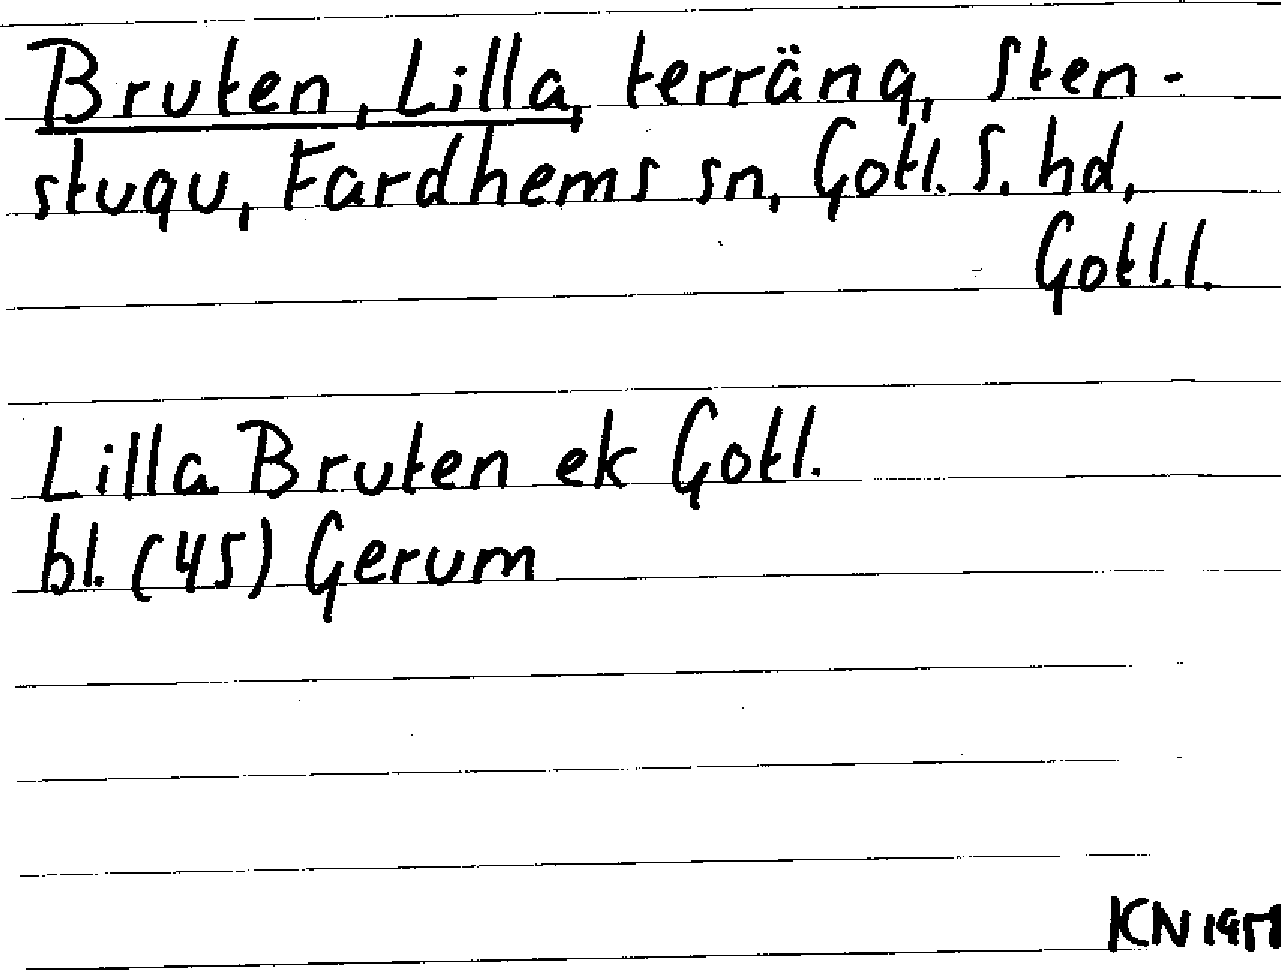 Bruten, Lilla, terräng, Sten-
stugu, Fardhems sn, Gotl. S. hd,
Gotl. l.
Lilla Bruten ek Gotl.
bl. (45) Gerum
KN